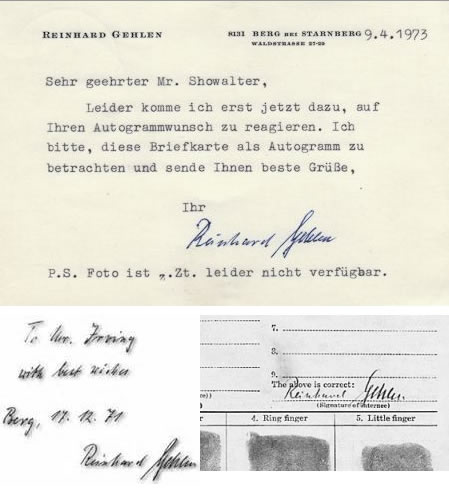 REINHARD GEHLEN
8131 BERG BEI STARNBERG 9.4.1973
WALDSTRASSE 27-29
Sehr geehrter Mr. Showalter,
Leider komme ich erst jetzt dazu, auf
Ihren Autogrammwunsch zu reagieren. Ich
bitte, diese Briefkarte als Autogramm zu
betrachten und sende Ihnen beste Grüße,
Ihr
Reinhard Gehlen
P.S. Foto ist z.Zt. leider nicht verfügbar.
To Mr. Irving
with best wishes
Berg, 17. 12. 71
Reinhard Gehlen
7.
8.
9.
The above is correct:
Reinhard Gehlen
(Signature of internee)
4. Ring finger
5. Little finger